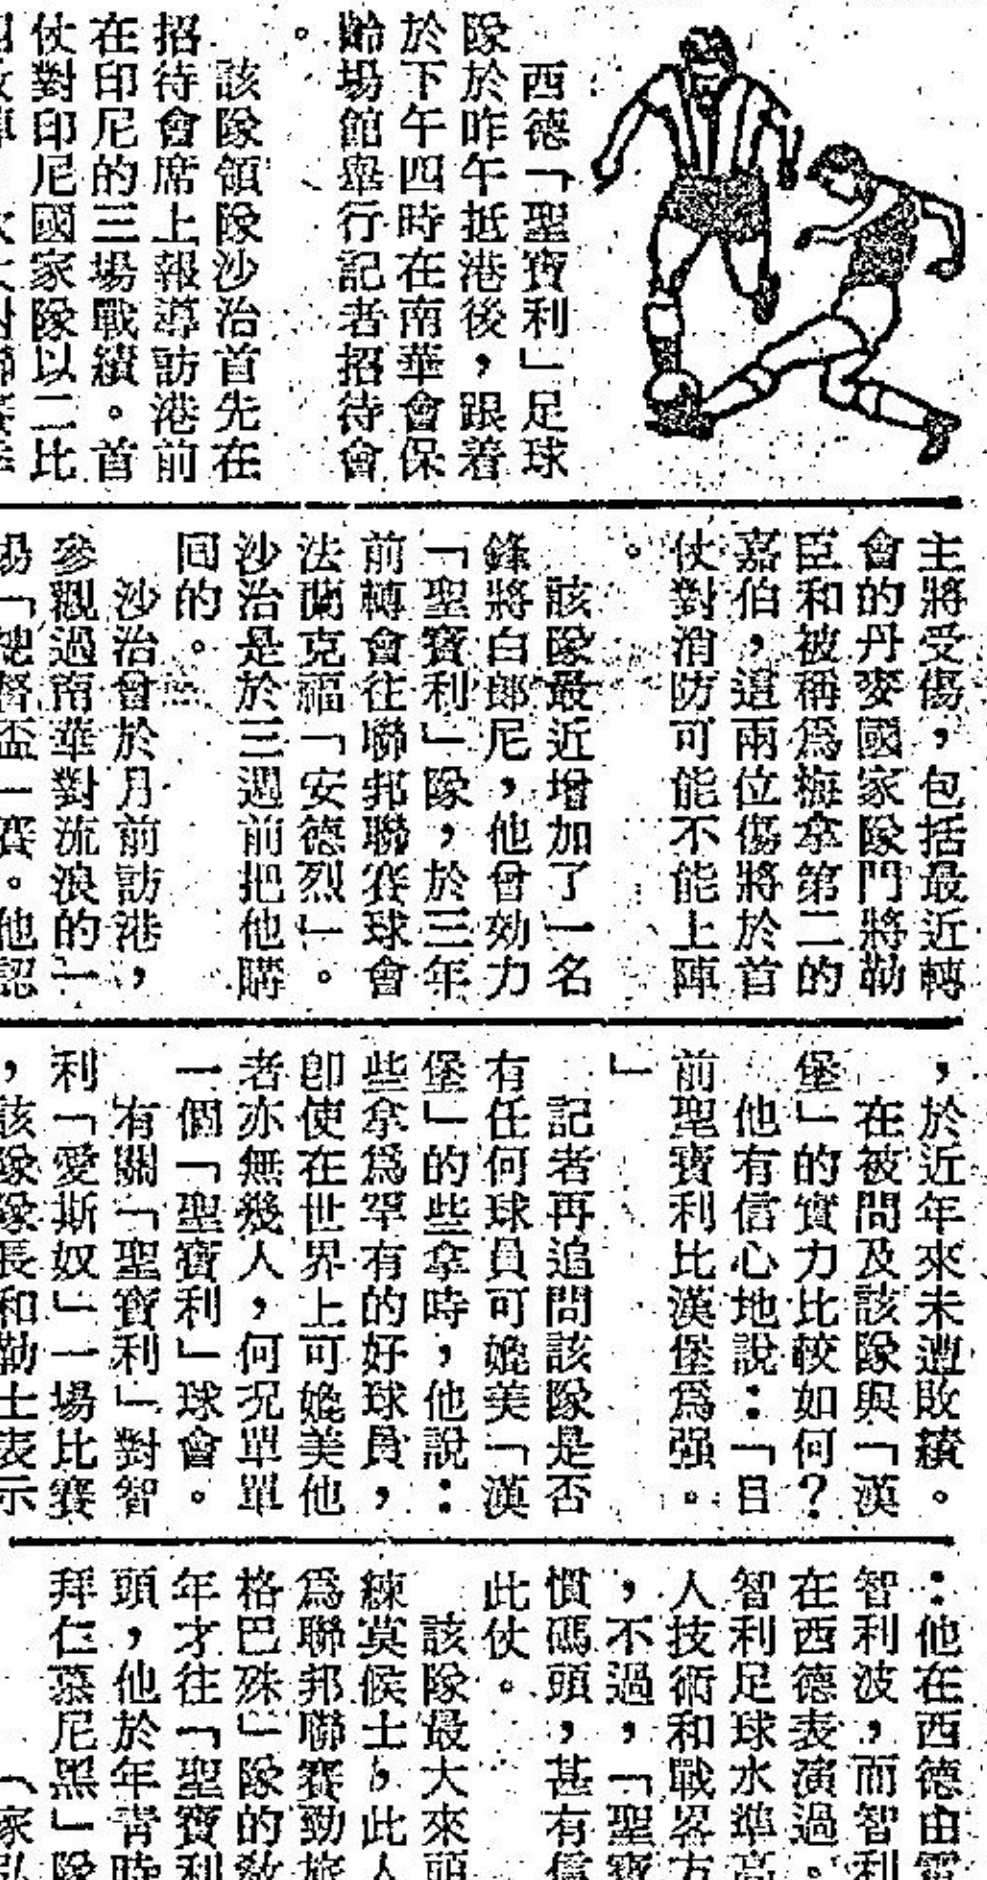 西德「聖寶利」足球
隊於昨午抵港後，跟着
於下午四時在南華會保
齡場館舉行記者招待會
。
該隊領隊沙治首先在
招待會席上報導訪港前
在印尼的三場戰績。首
仗對印尼國家隊以二比
主將受傷，包括最近轉
會的丹麥國家隊門將勒
臣和被稱爲梅拿第二的
嘉伯，這兩位傷將於首
仗對消防可能不能上陣
。
該隊最近增加了一名
鋒將白郎尼，他曾効力
「聖寶利」隊，於三年
前轉會往聯邦聯賽球會
法蘭克福「安德烈」。
沙治是於三週前把他購
回的。
沙治曾於月前訪港，
參觀過南華對流浪的一
場「總督盃」賽。他認
，於近年來未遭敗績。
在被問及該隊與「漢
堡」的實力比較如何？
他有信心地說：「目
前聖寶利比漢堡爲强。
」
記者再追問該隊是否
有任何球員可媲美「漢
堡」的些拿時，他說：
些拿爲罕有的好球員，
卽使在世界上可媲美他
者亦無幾人，何况單單
一個「聖寶利」球會。
有關「聖寶利」對智
利「愛斯奴」一場比賽
，該隊隊長和勒士表示
：他在西德由電
智利波，而智利
在西德表演過。
智利足球水準高
人技術和戰畧方
，不過，「聖寶
慣碼頭，甚有信
此仗。
該隊最大來頭
練莫侯士，此人
爲聯邦聯賽勁旅
格巴殊」隊的教
年才往「聖寶利
頭，他於年青時
拜仁慕尼黑」隊